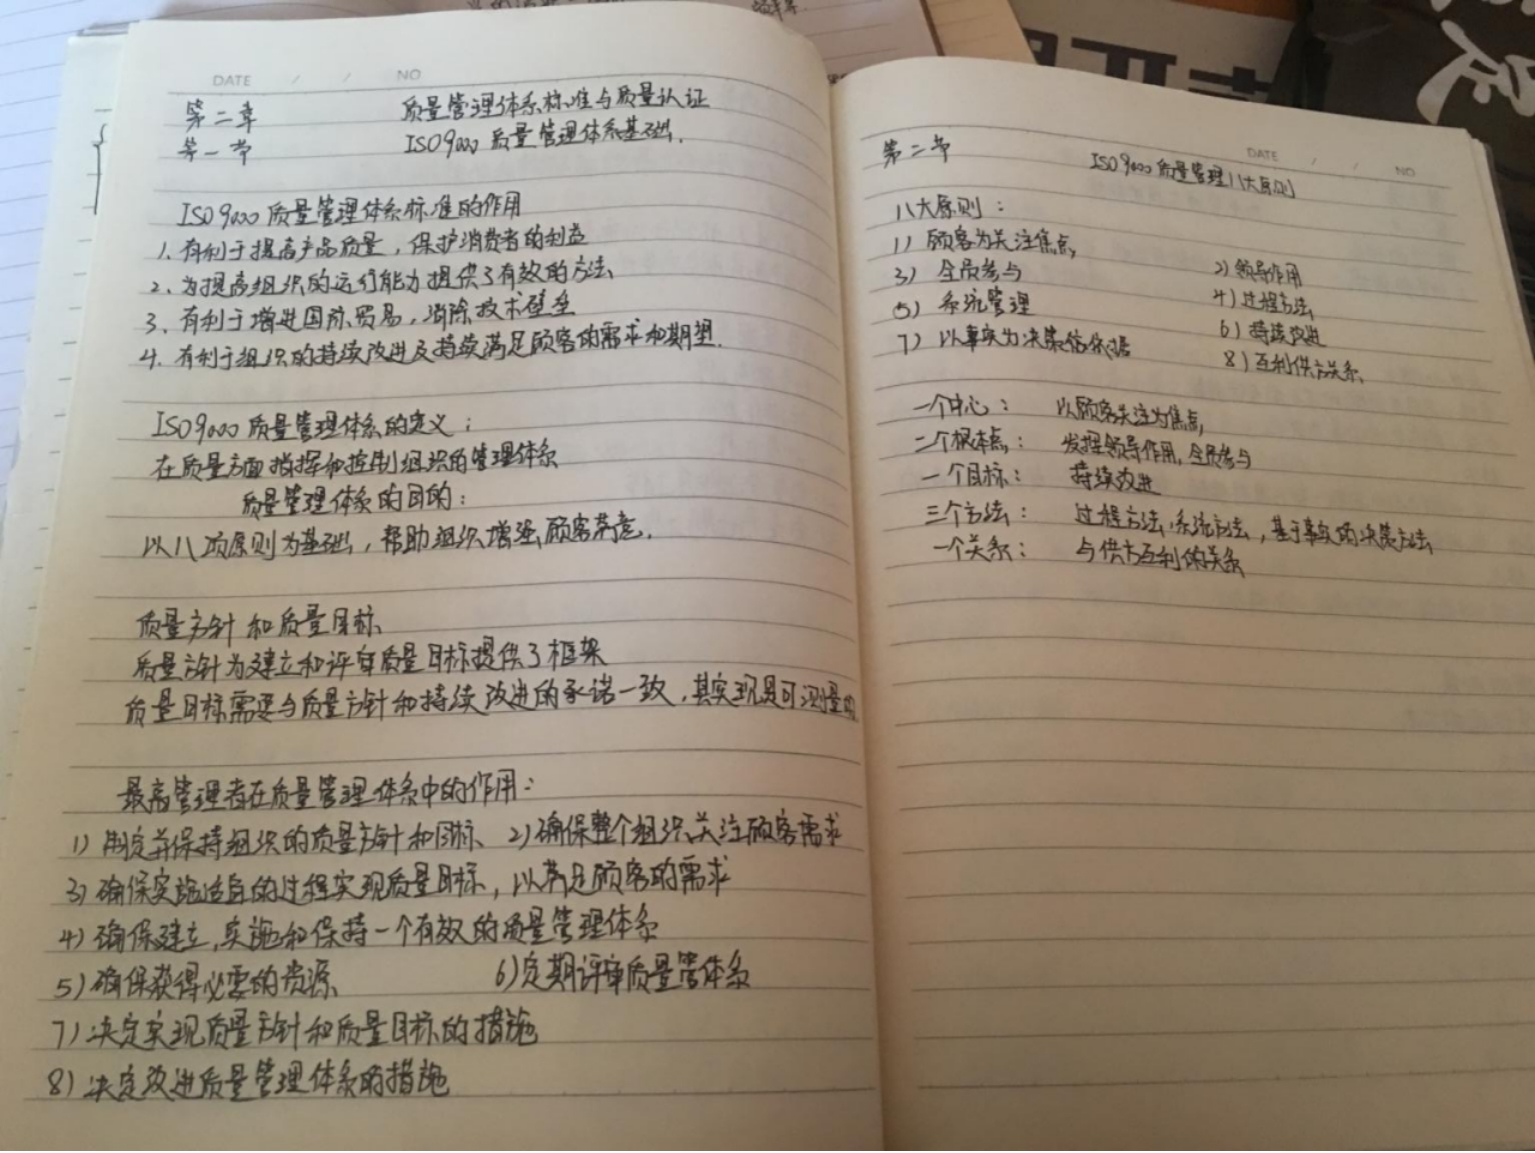 DATE / / NO
第二章 质量管理体系标准与质量认证
第一节 ISO9000质量管理体系基础.
ISO9000质量管理体系标准的作用
1、有利于提高产品质量，保护消费者的利益
2、为提高组织的运行能力提供了有效的方法
3、有利于增进国际贸易，消除技术壁垒
4、有利于组织的持续改进及持续满足顾客的需求和期望.
ISO9000质量管理体系的定义：
在质量方面指挥和控制组织的管理体系
质量管理体系的目的：
以八项原则为基础，帮助组织增强顾客满意.
质量方针和质量目标
质量方针为建立和评审质量目标提供了框架
质量目标需要与质量方针和持续改进的承诺一致，其实现是可测量的
最高管理者在质量管理体系中的作用：
1）制定并保持组织的质量方针和目标 2）确保整个组织关注顾客需求
3）确保实施适宜的过程实现质量目标，以满足顾客的需求
4）确保建立,实施和保持一个有效的质量管理体系
5）确保获得必要的资源 6）定期评审质量管体系
7）决定实现质量方针和质量目标的措施
8）决定改进质量管理体系的措施
DATE / / NO
第二节 ISO9000质量管理八大原则
八大原则：
1）顾客为关注焦点
2）领导作用
3）全员参与
4）过程方法
5）系统管理
6）持续改进
7）以事实为决策依据
8）互利供方关系
一个中心： 以顾客关注为焦点
二个根本点： 发挥领导作用,全员参与
一个目标： 持续改进
三个方法： 过程方法,系统方法，基于事实的决策方法
一个关系： 与供方互利的关系